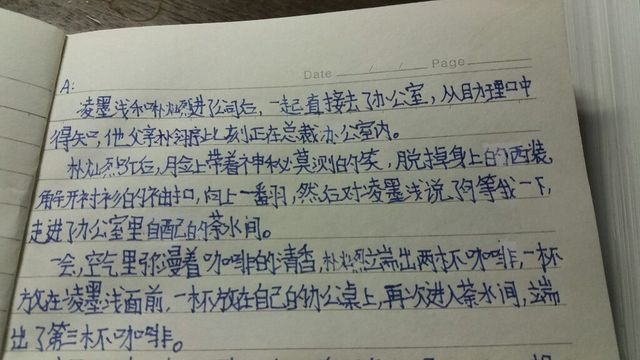 Date / / Page
A:
凌墨浅和朴灿烈进公司后,一起直接去了办公室,从助理口中
得知,他父亲朴 此刻正在总裁办公室内。
朴灿烈 后,脸上带着神秘莫测的笑,脱掉身上的西装,
解开衬衫的袖口,向上一番羽,然后对凌墨浅说了句等我一下,
走进了办公室里自配的茶水间。
一会,空气里弥漫着咖啡的清香,朴灿烈端出两杯咖啡,一杯
放在凌墨浅面前,一杯放在自己的办公桌上,再次进入茶水间,端
出了第三杯咖啡。